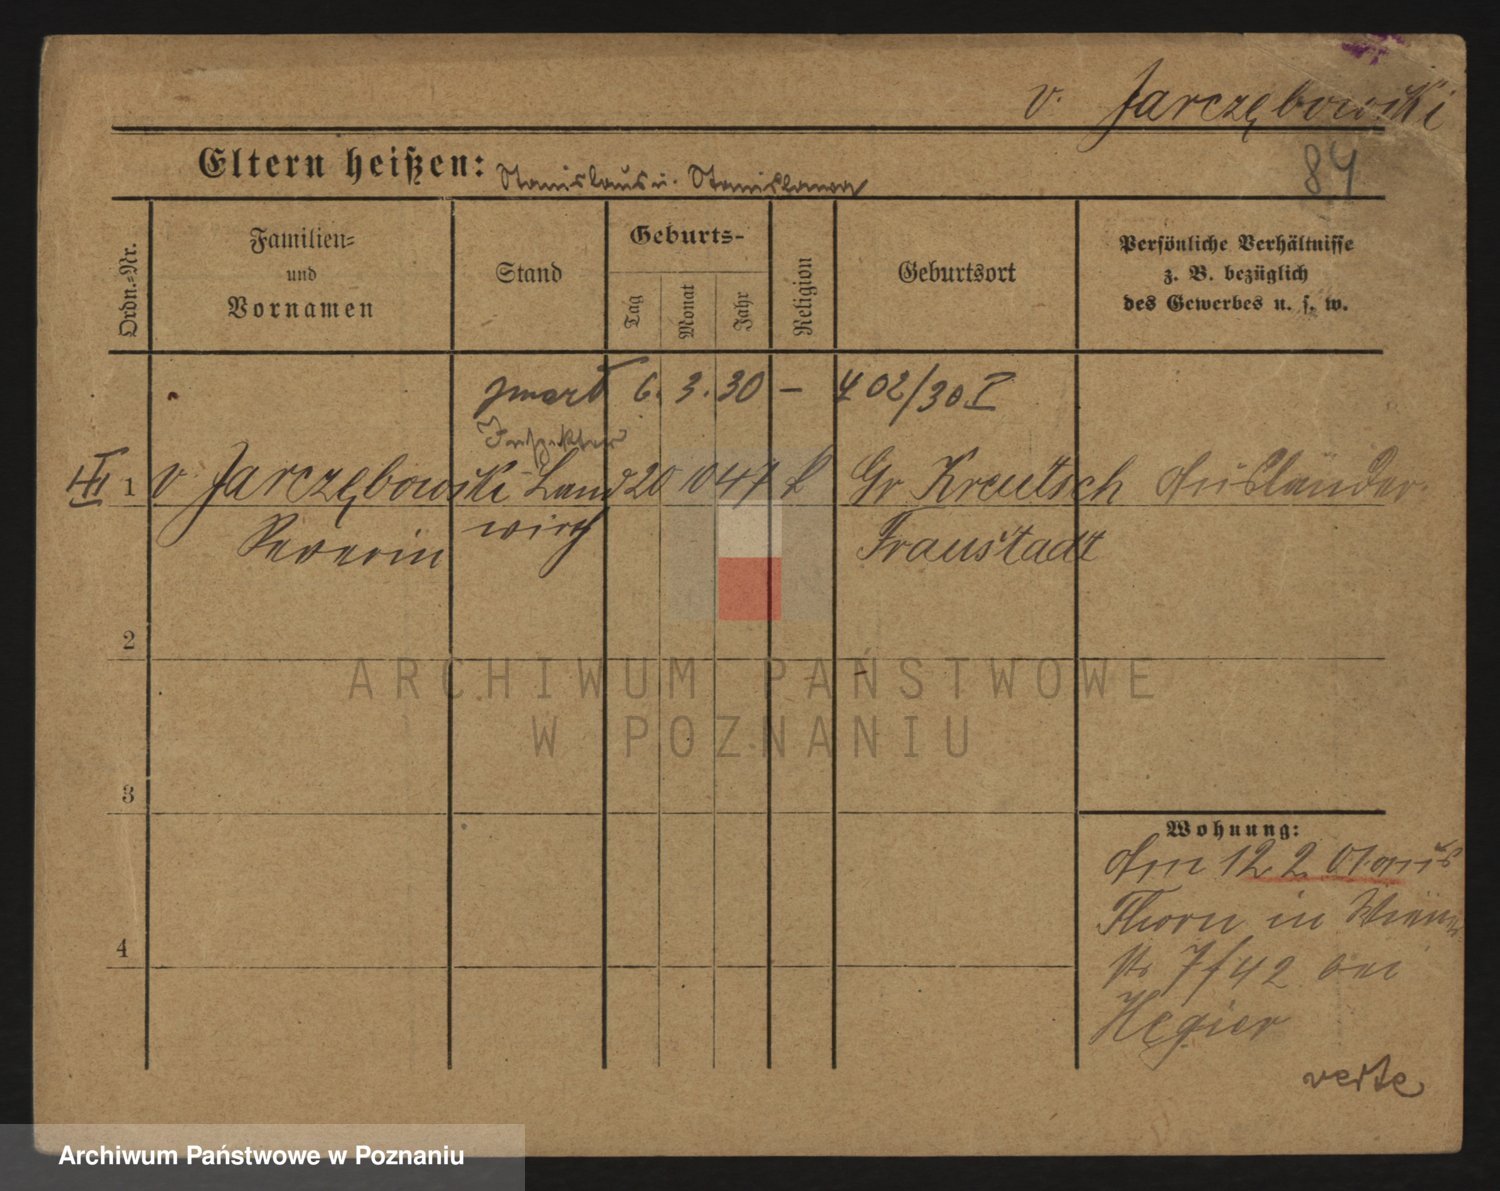 v. Jarczębowski
84
Eltern heißen: Stanislaus u. Stanislawa
Ordn.-Nr.
Familien-
und
Vornamen
Stand
Geburts-
Tag
Monat
Jahr
Religion
Geburtsort
Persönliche Verhältnisse
z. B. bezüglich
des Gewerbes u. s. w.
zmarł 6. 3. 30 – 402/30 I
Inspektor
III 1 v Jarczębowski Land 20 10 47 k Gr Kreutsch Ausländer.
Severin wirth Fraustadt
2
3
4
Wohnung:
Am 12 2 01 aus
Thorn in Wiener
str 7 f 42 bei
Hegier
verte
ARCHIWUM PAŃSTWOWE
W POZNANIU
Archiwum Państwowe w Poznaniu